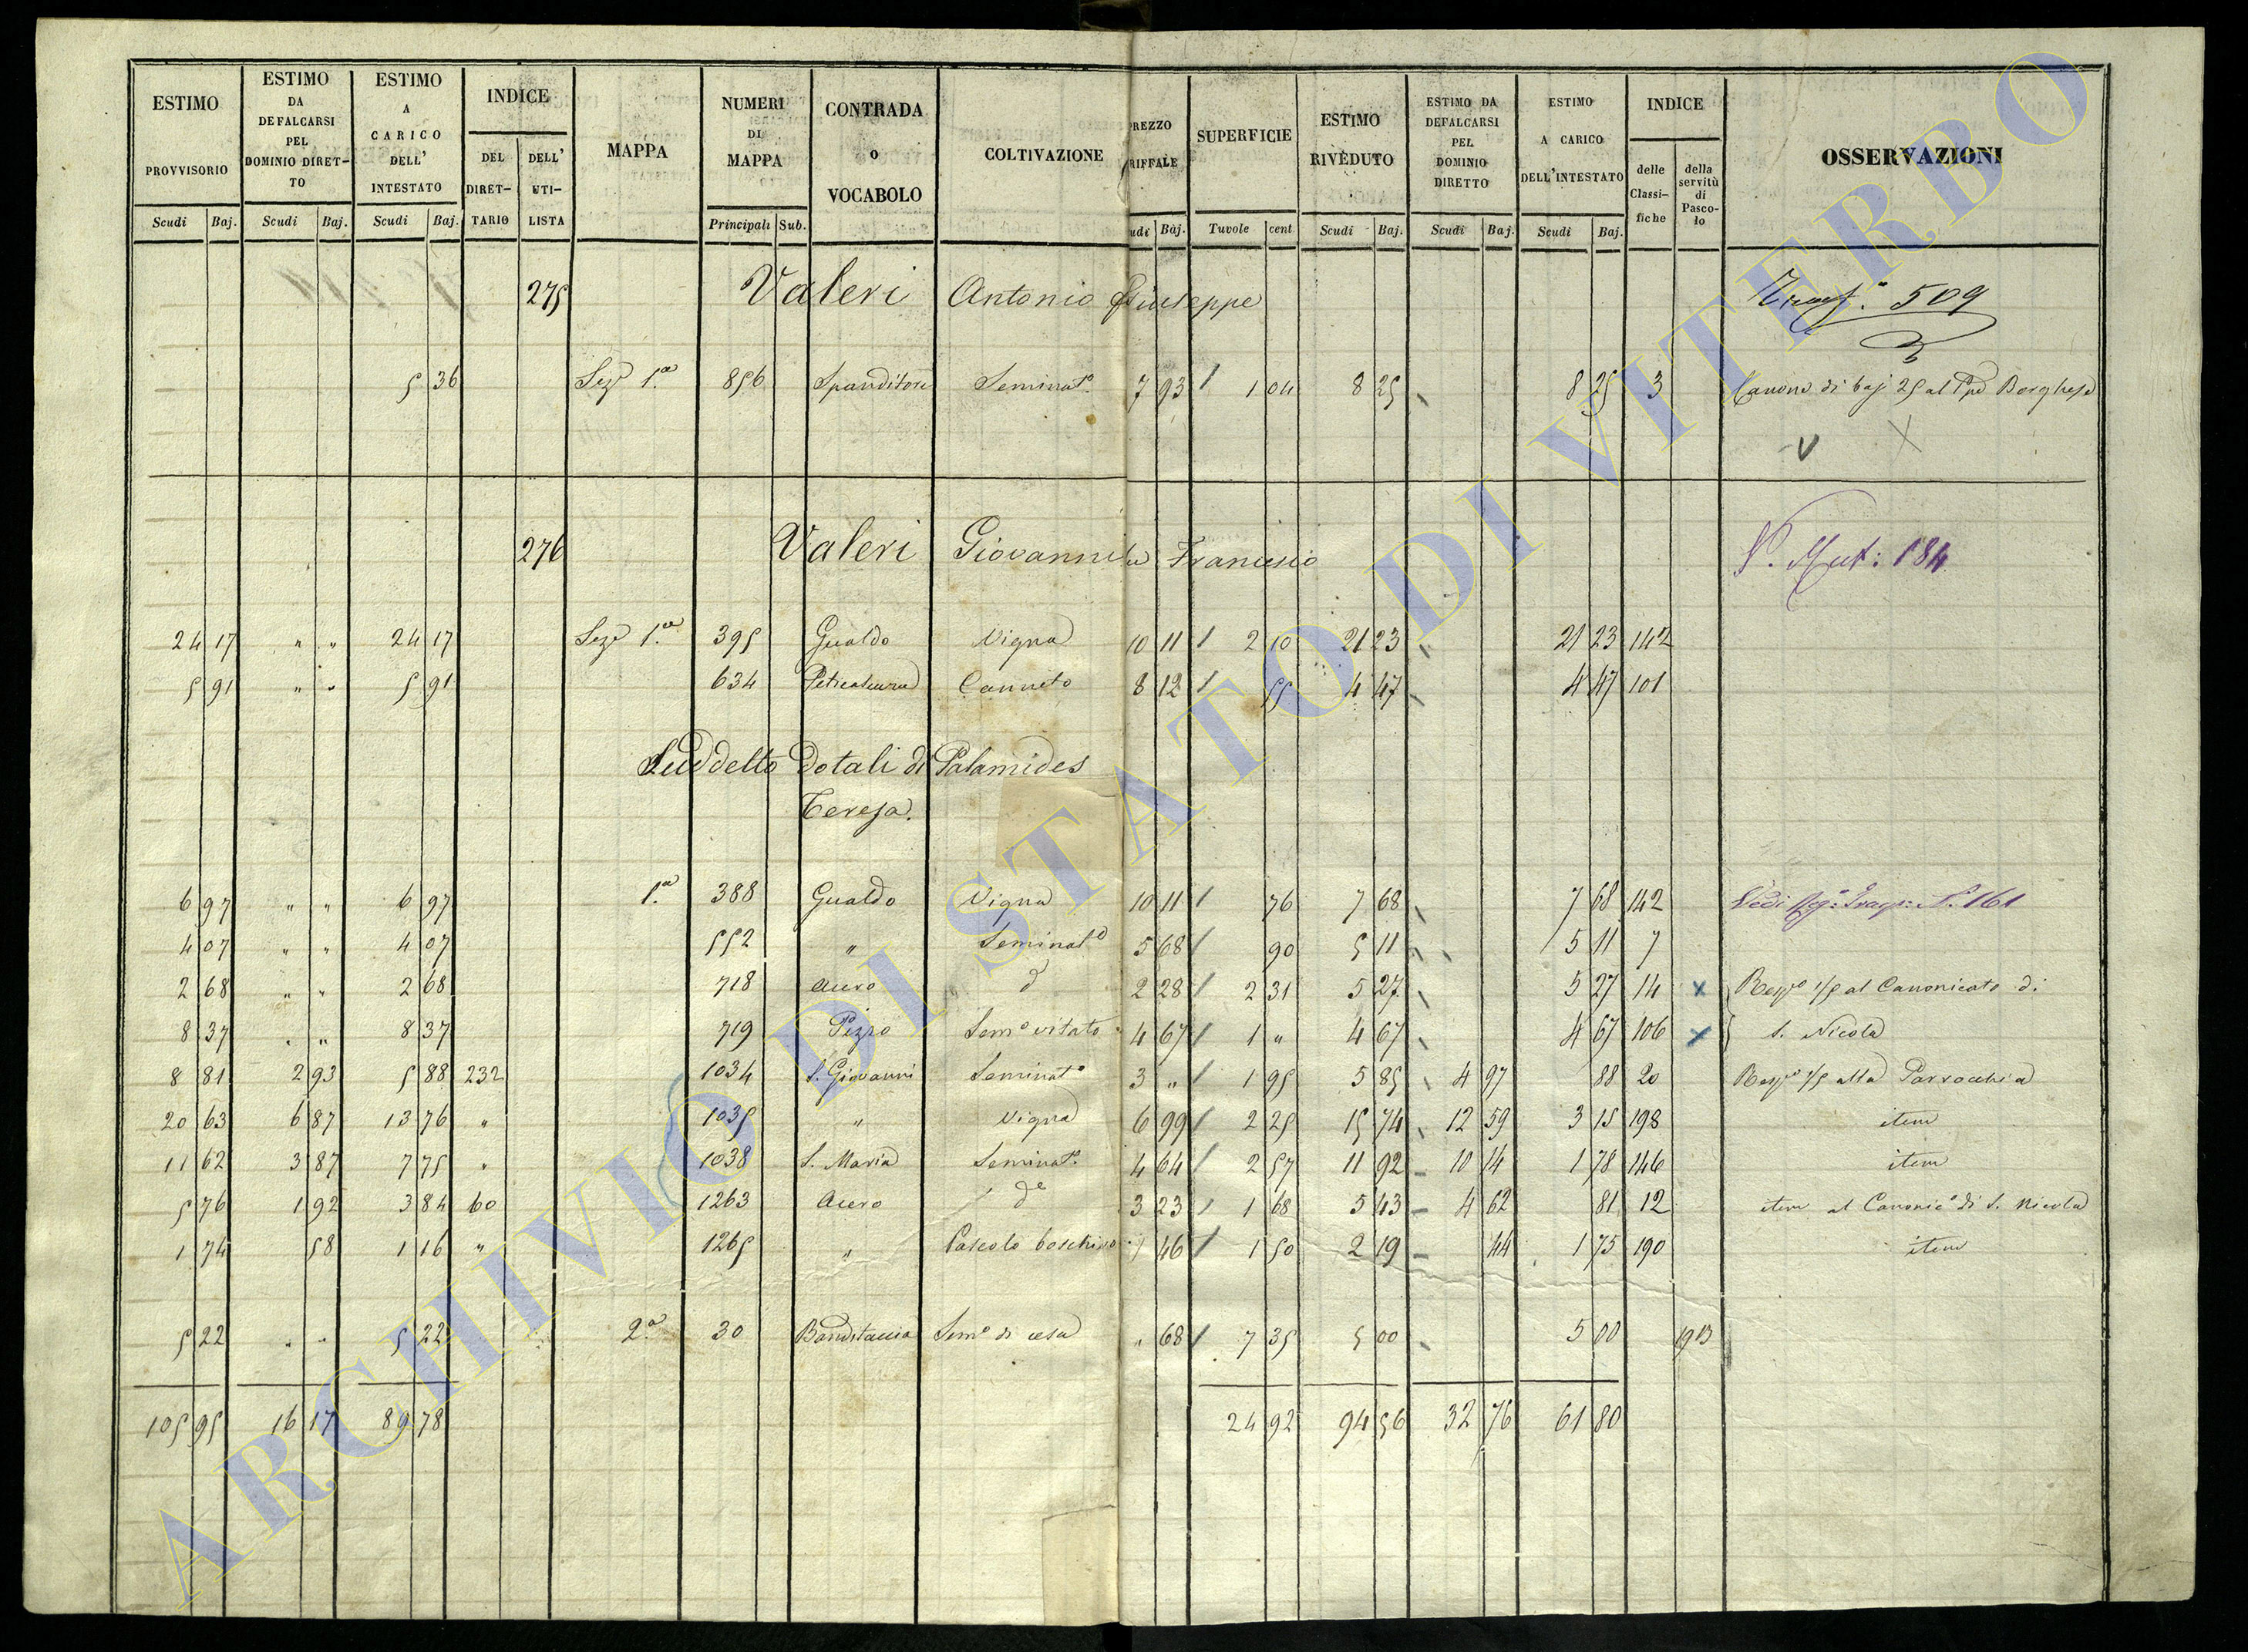 ESTIMO PROVVISORIO Scudi Baj.
ESTIMO DA DEFALCARSI PEL DOMINIO DIRET-TO Scudi Baj.
ESTIMO A CARICO DELL' INTESTATO Scudi Baj.
INDICE DEL DIRET-TARIO DELL' UTI-LISTA
MAPPA
NUMERI DI MAPPA Principali Sub.
CONTRADA O VOCABOLO
COLTIVAZIONE
REZZO RIFFALE udi Baj.
SUPERFICIE Tuvole cent
ESTIMO RIVEDUTO Scudi Baj.
ESTIMO DA DEFALCARSI PEL DOMINIO DIRETTO Scudi Baj.
ESTIMO A CARICO DELL'INTESTATO Scudi Baj.
INDICE delle Classi-fiche della servitù di Pasco-lo
OSSERVAZIONI
275 Valeri Antonio Giuseppe 509
5 36 Sez.e 1.a 856 Spanditore Seminat.o 7 93 1 04 8 25 8 25 3 Canone di baj 25 al Ppe Borghese
276 Valeri Giovanni Francesco N. Mut: 184
24 17 " " 24 17 Sez.e 1.a 395 Gualdo Vigna 10 11 2 10 21 23 21 23 142
5 91 " " 5 91 634 Canneto 8 12 55 4 47 4 47 101
Suddetto Dotali di Palamides
Teresa.
6 97 " " 6 97 1.a 388 Gualdo Vigna 10 11 76 7 68 7 68 142 Vedi N. 161
4 07 " " 4 07 552 " Seminat.o 5 68 90 5 11 5 11 7
2 68 " " 2 68 718 Acero d 2 28 2 31 5 27 5 27 14 x Resp.o 1/5 al Canonicato di
8 37 " " 8 37 719 Pizzo Sem.o vitato 4 67 1 " 4 67 4 67 106 x S. Nicola
8 81 2 93 5 88 232 1034 S. Giovanni Seminat.o 3 " 1 95 5 85 4 97 88 20 Resp.o 1/5 alla Parrocchia
20 63 6 87 13 76 " 1035 " Vigna 6 99 2 25 15 74 12 59 3 15 198 item
11 62 3 87 7 75 " 1038 S. Maria Seminat.o 4 64 2 57 11 92 10 14 1 78 146 item
5 76 1 92 3 84 60 1263 Acero d.o 3 23 1 68 5 43 4 62 81 12 item al Canonic.o di S. Nicola
1 74 58 1 16 " 1265 " Pascolo boschivo 1 46 1 50 2 19 44 1 75 190 item
5 22 " " 5 22 2.a 30 Banditaccia Sem.o di cesa " 68 7 35 5 00 5 00
105 95 16 17 89 78 24 92 94 56 32 76 61 80
ARCHIVIO DI STATO DI VITERBO